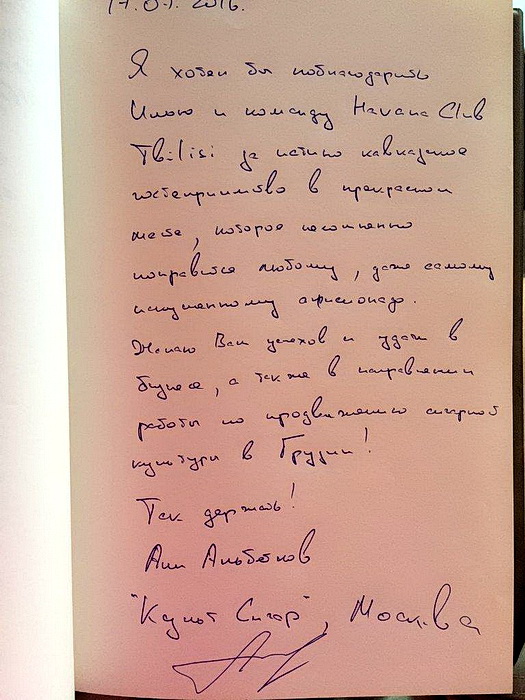 Я хотел бы поблагодарить
Илью и команду Havana Club
Tbilisi за истино кавказкое
гостеприимство в прекрасном
месте, которое несомненно
понравится любому, даже самому
искушенному афисионадо.
Желаю Вам успехов и удачи в
бизнесе, а так же в направлении
работы по продвижению сигарной
культуры в Грузии!
Так держать!
Али
"Культ Сигар", Москва